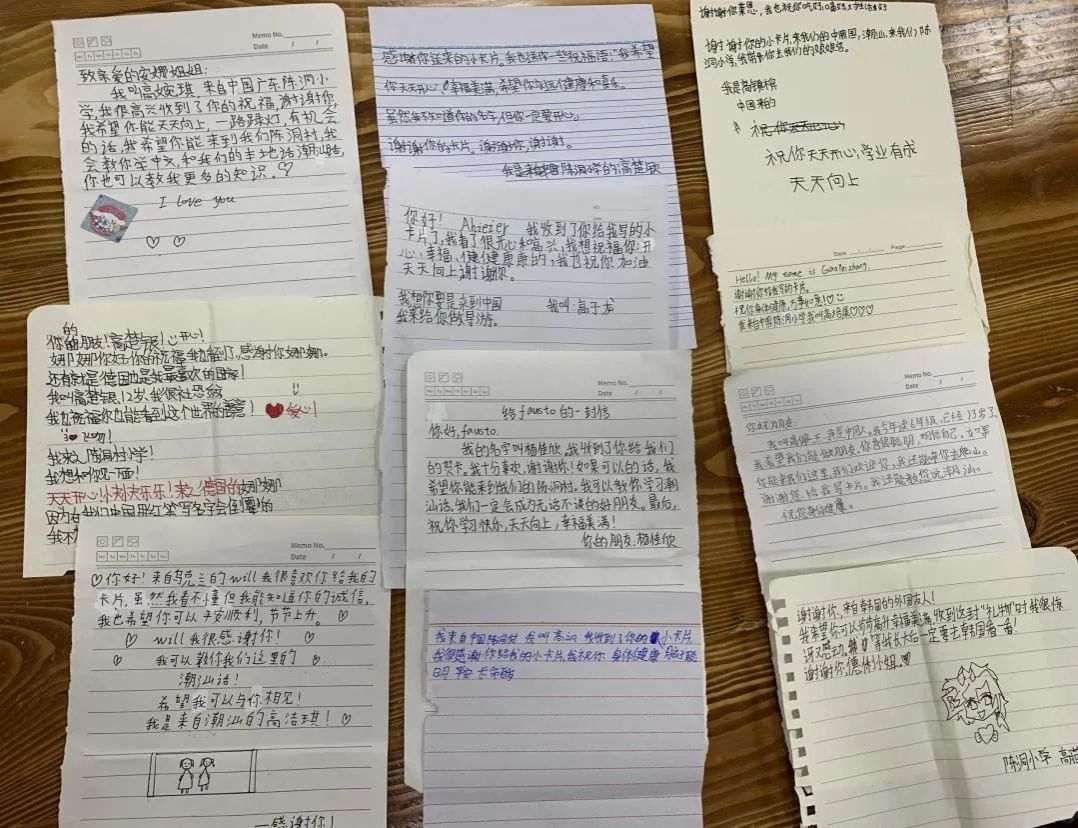 Memo No.
Date / /
Mo Tu We Th Fr Sa Su
致亲爱的安娜姐姐:
我叫高婉琪,来自中国广东陈洞小
学,我很高兴收到了你的祝福,谢谢你,
我希望你能天天向上,一路绿灯,有机会
的话,我希望你能来到我们陈洞村,我
会教你学中文,和我们的本地话潮汕话,
你也可以教我更多的知识。♡
I love you
的
你的朋友!高楚银!心开心!
娜娜你好你的祝福我也收到了,感谢你娜娜。
还有就是德国也是我最喜欢的国家!
我叫高楚银,12岁,我很社恐
我也祝福你也能看到这个世界的
爱心!
我来陈洞村小学!
我想和你见一面!
天天开心!大大乐乐!来之德国的娜娜
因为在我们中国用红笔写名字会
我不
Memo No.
Date / /
Mo Tu We Th Fr Sa Su
♡你好!来自乌克兰的will我很喜欢你给我的
卡片,虽然我看不懂但我能知道你的诚信,
我也希望你可以平安顺利,节节上升。♡
♡ will我很感谢你! ♡
♡ 我可以教你我们这里的 ♡
潮汕话!
希望我可以与你相见!
我是来自潮汕的高洁琪!♡
—感谢你!
感谢你送来的小卡片,我也送你一些祝福语:"我希望
你天天开心,幸福美满,希望你永远健康和喜乐。
虽然我不知道你的名字,但你一定要开心。
谢谢你的卡片,谢谢你,谢谢。
我是来自中国陈洞小学的高楚欣
你好! Ahiezer 我收到了你给我写的小
卡片了,我看了很开心和高兴,我想祝福你:开
心、幸福、健健康康的,我也祝你加油
天天向上谢谢你。
我想你要是来到中国 我叫:高子龙
我来给你做导游。
Memo No.
Date / /
Mo Tu We Th Fr Sa Su
给fausto的一封信
你好,fausto.
我的名字叫杨佳欣,我收到了你给我们
的贺卡,我十分喜欢,谢谢你!如果可以的话,我
希望你能来到我们的陈洞村。我可以教你学习潮
汕话,我们一定会成为无话不谈的好朋友。最后,
祝你学习快乐,天天向上,幸福美满!
你的朋友:杨佳欣
我来自中国陈洞村 我叫高 我收到了你的小卡片
我很感谢你给我的小卡片,我祝你 身体健康
明 平安
谢谢你莱恩,我也祝你吃好喝好生活美好
谢谢你的小卡片,来我们的中国,潮汕,来我们陈
洞小学,我带你去我们的
我是高
中国来的
祝你天天开心
祝你天天开心,学业有成
天天向上
Date Page
Hello! My name is Gao Peizhang.
谢谢你给我写的卡片。
祝你身体健康,万事如意!♡
我来自中国陈洞小学我叫高培展♡♡♡
Memo No.
Date / /
Mo Tu We Th Fr Sa Su
你好朋友:
我叫高 ,我是中国人。我今年读6年级,已经13岁了,
我希望我们能做朋友,你 很聪明,相信自己。如果
你能来我们这里,我们欢迎你,我还能带你去爬山。
谢谢您给我写卡片。我还能教你说潮汕。
祝您身体健康。
谢谢你,来自韩国的外国友人!
我希望你可以步步高升幸福美满,收到这封"礼物"时我很惊
讶又感动。 等我长大后一定要去韩国看一看!
谢谢你,德 小姐.♡
陈洞小学 高